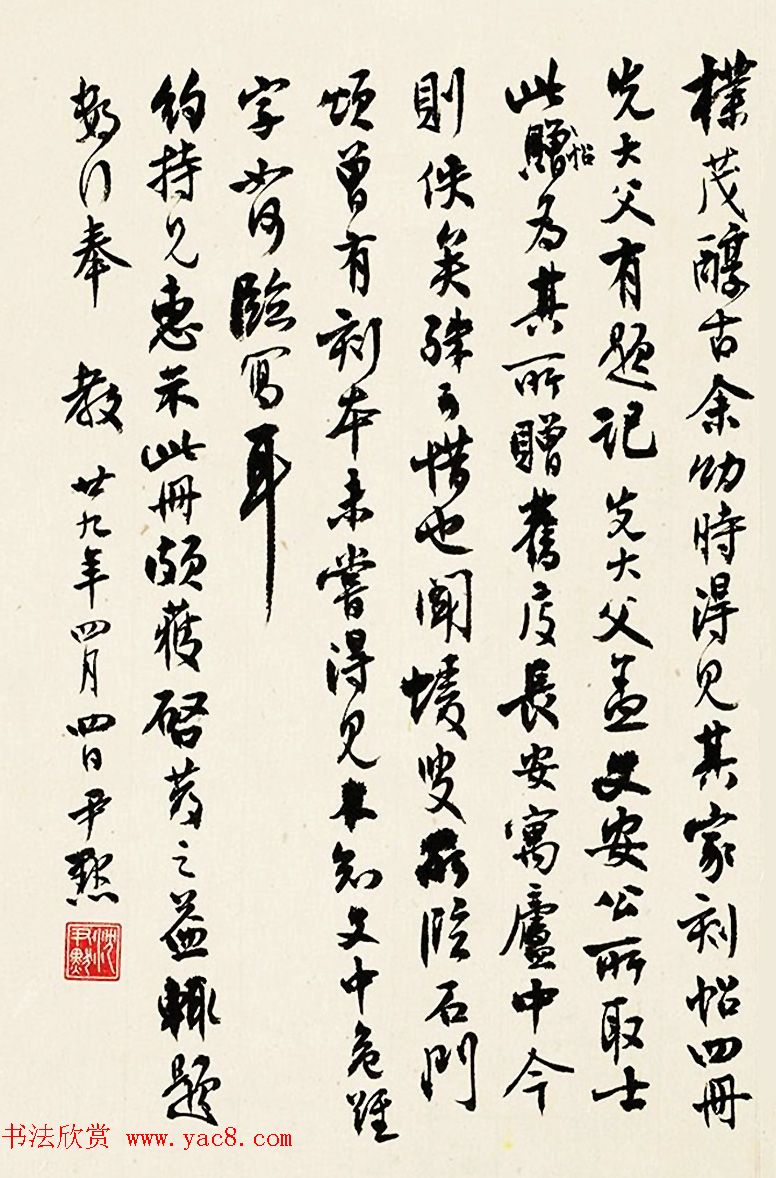 樸茂醇古余幼時得見其家刻帖四冊
先大父有題記先大父蓋文安公所取士
此贈帖為其所贈舊度長安寓廬中今
則佚矣殊可惜也聞蝯叟所臨石門
頌曾有刻本未嘗得見不知文中危難
字當臨寫耳
約持兄惠示此冊頗獲啓蒙之益輒題
數行奉教廿九年四月四日尹默
沈尹默
书法欣赏 www.yac8.com